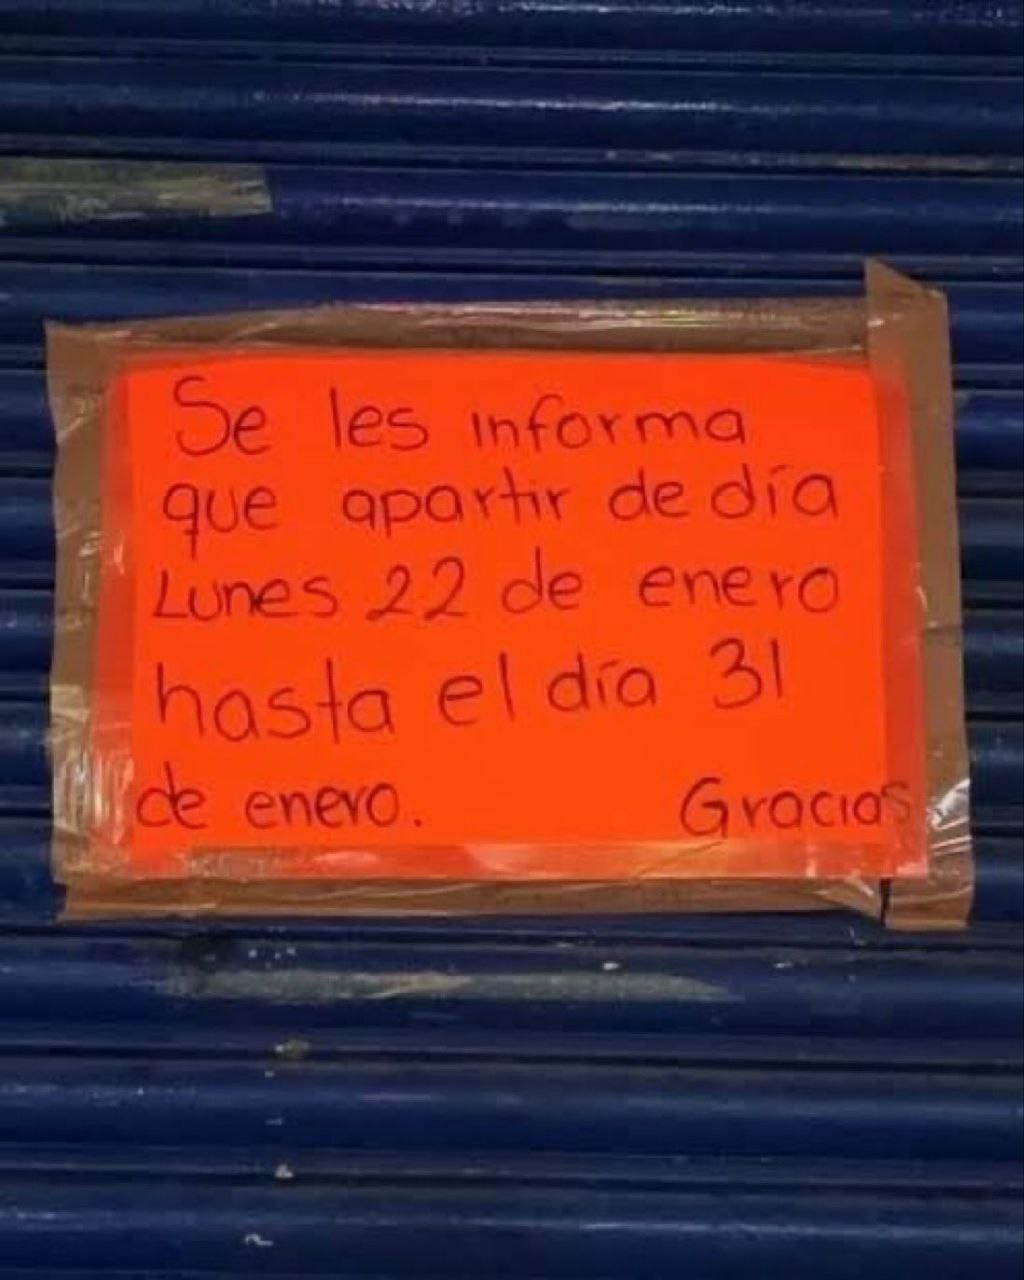 Se les informa
que apartir de día
Lunes 22 de enero
hasta el día 31
de enero. Gracias